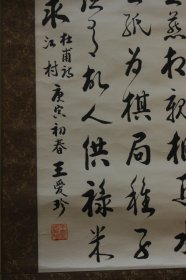 燕相親相近水
紙為棋局稚子
有故人供祿米
求
杜甫詩
江村庚寅初春王愛珍